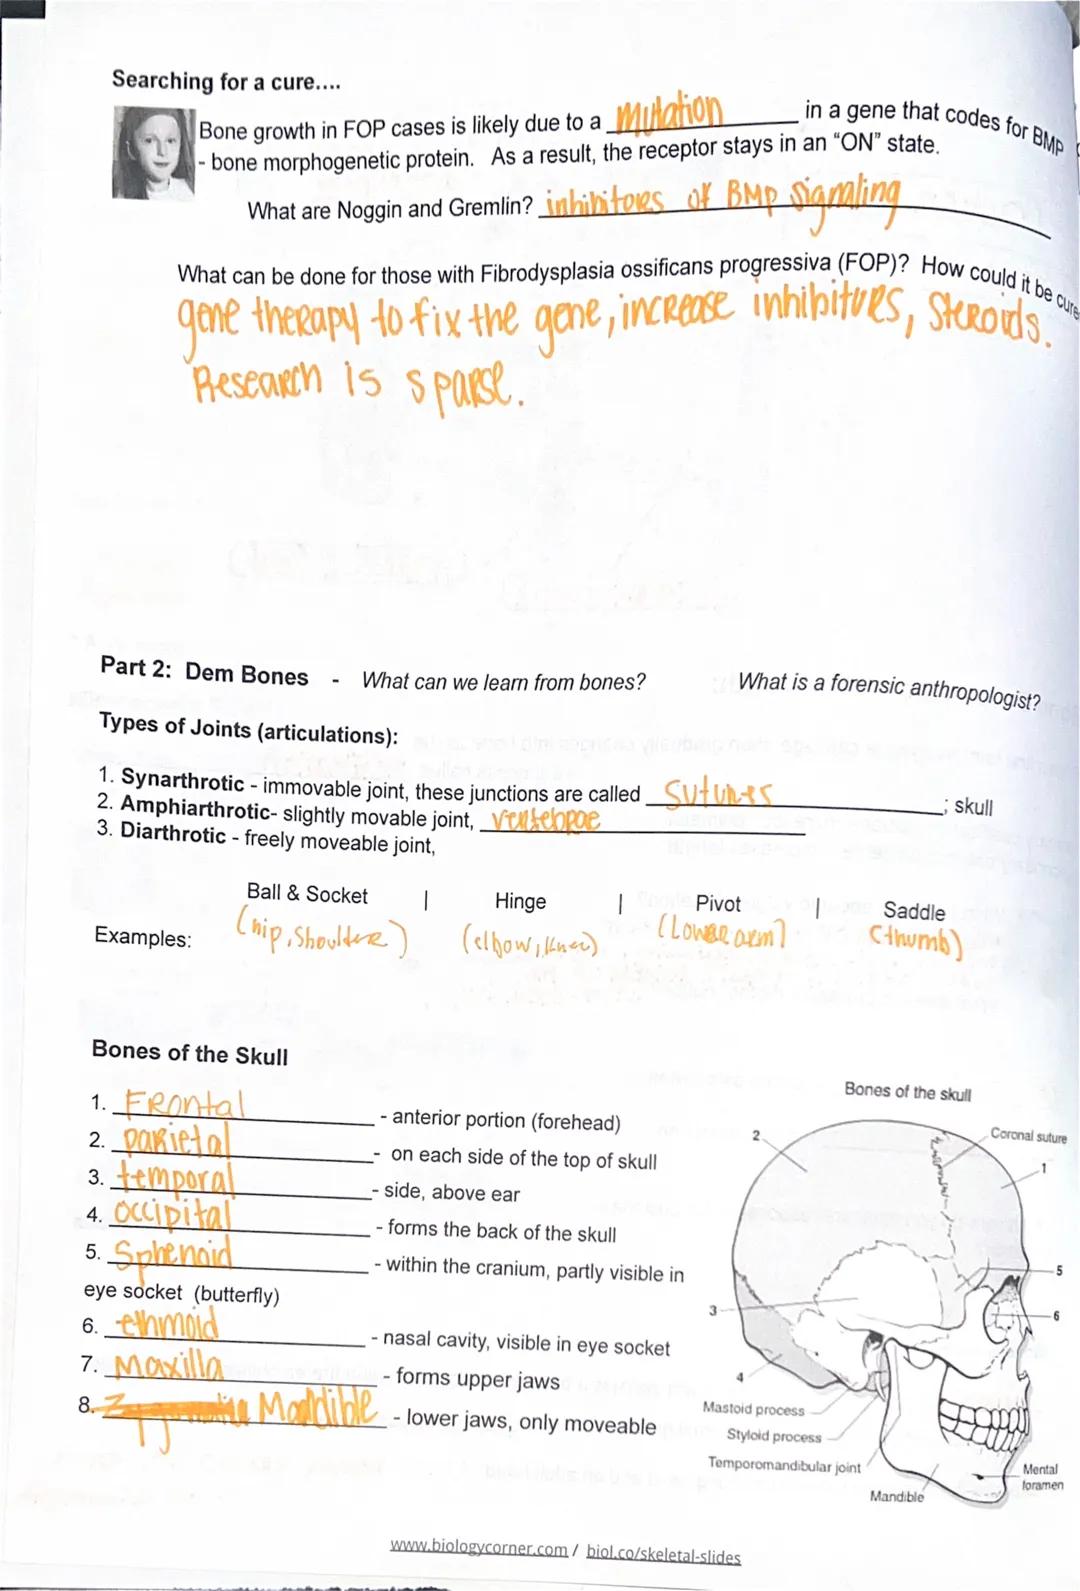 Searching for a cure....
Bone growth in FOP cases is likely due to a mutation in a gene that codes for BMP
- bone morphogenetic protein. As a result, the receptor stays in an “ON” state.
What are Noggin and Gremlin? inhibitors of BMP signaling
What can be done for those with Fibrodysplasia ossificans progressiva (FOP)? How could it be cure
gene therapy to fix the gene, increase inhibitors, Steroids.
Research is sparse.
Part 2: Dem Bones - What can we learn from bones? What is a forensic anthropologist?
Types of Joints (articulations):
1. Synarthrotic - immovable joint, these junctions are called sutures ; skull
2. Amphiarthrotic- slightly movable joint, vertebrae
3. Diarthrotic - freely moveable joint,
Ball & Socket | Hinge | Pivot | Saddle
Examples: (hip, Shoulder) (elbow, knee) (Lower arm) (thumb)
Bones of the Skull
1. Frontal - anterior portion (forehead)
2. parietal - on each side of the top of skull
3. temporal - side, above ear
4. occipital - forms the back of the skull
5. Sphenoid - within the cranium, partly visible in
eye socket (butterfly)
6. ethmoid - nasal cavity, visible in eye socket
7. Maxilla - forms upper jaws
8. Mandible - lower jaws, only moveable
Bones of the skull
Coronal suture
1
2
3
4
5
6
Mastoid process
Styloid process
Temporomandibular joint
Mandible
Mental
foramen
www.biologycorner.com / biol.co/skeletal-slides